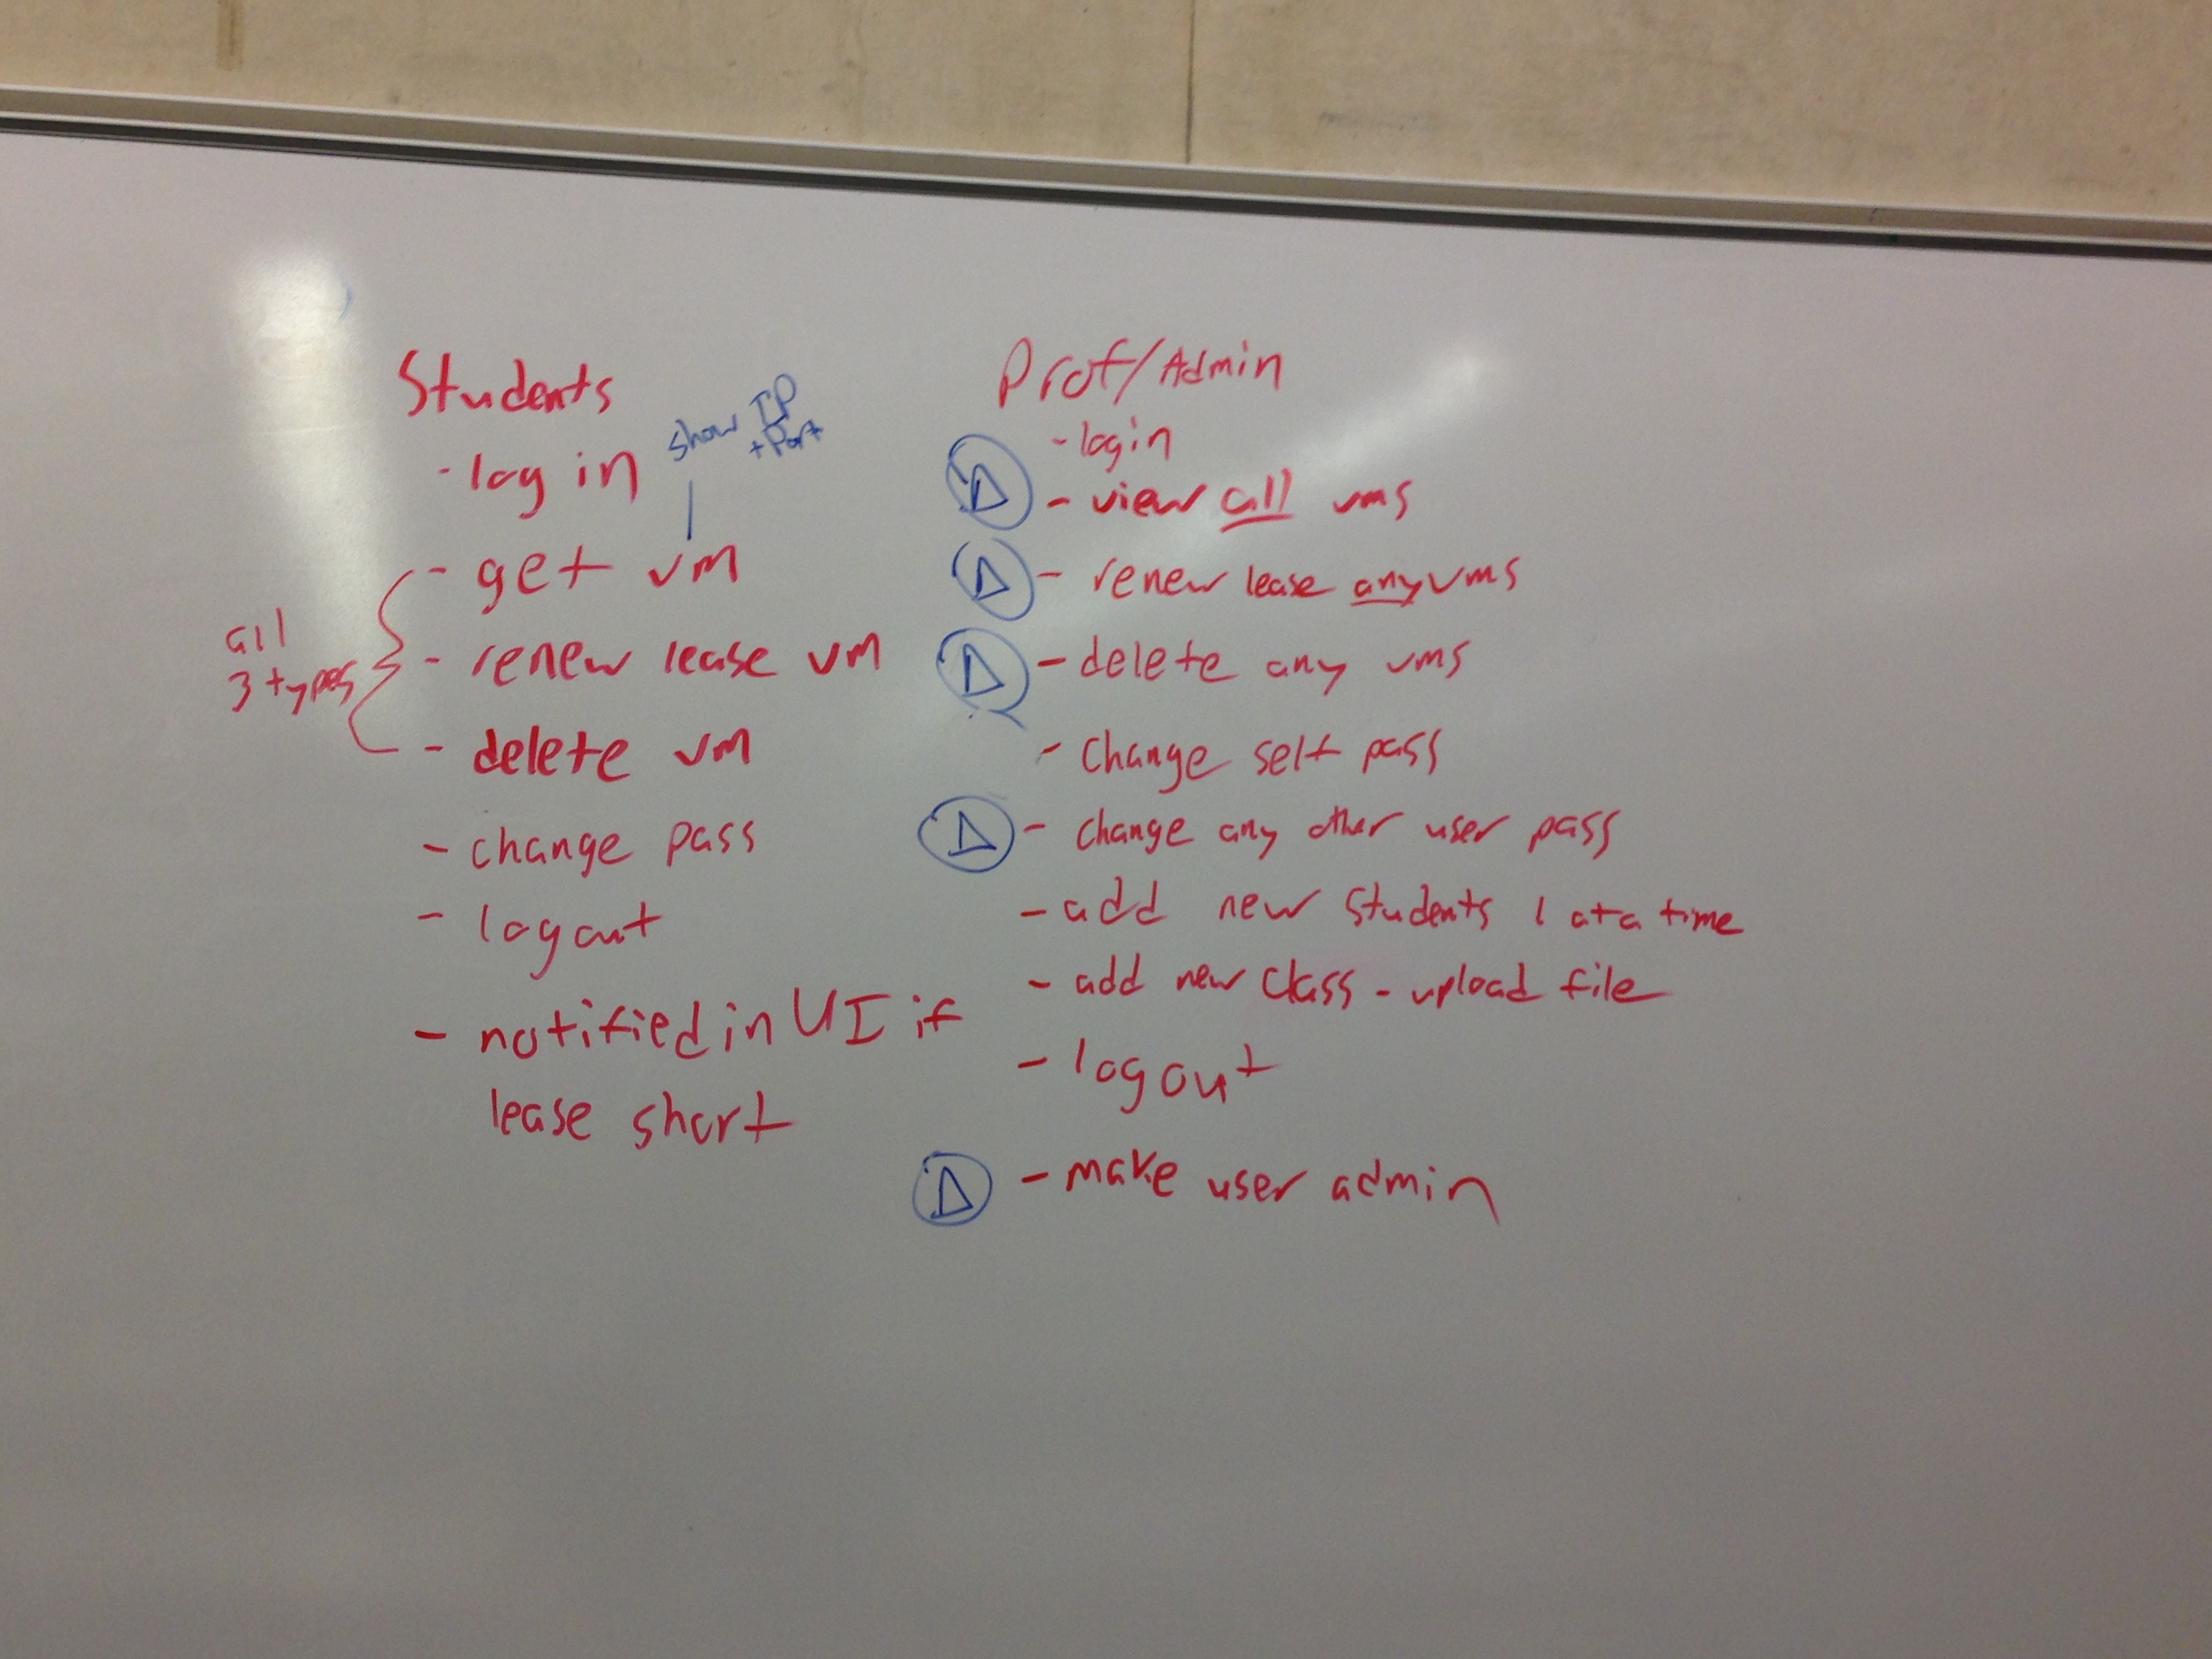 Students
- log in
show IP
+ Port
- get vm
all
3 types
- renew lease vm
- delete vm
- change pass
- logout
- notified in UI if
lease short
Prof/Admin
- login
- view all vms
- renew lease any vms
- delete any vms
- change self pass
- change any other user pass
- add new students 1 at a time
- add new class - upload file
- logout
- make user admin